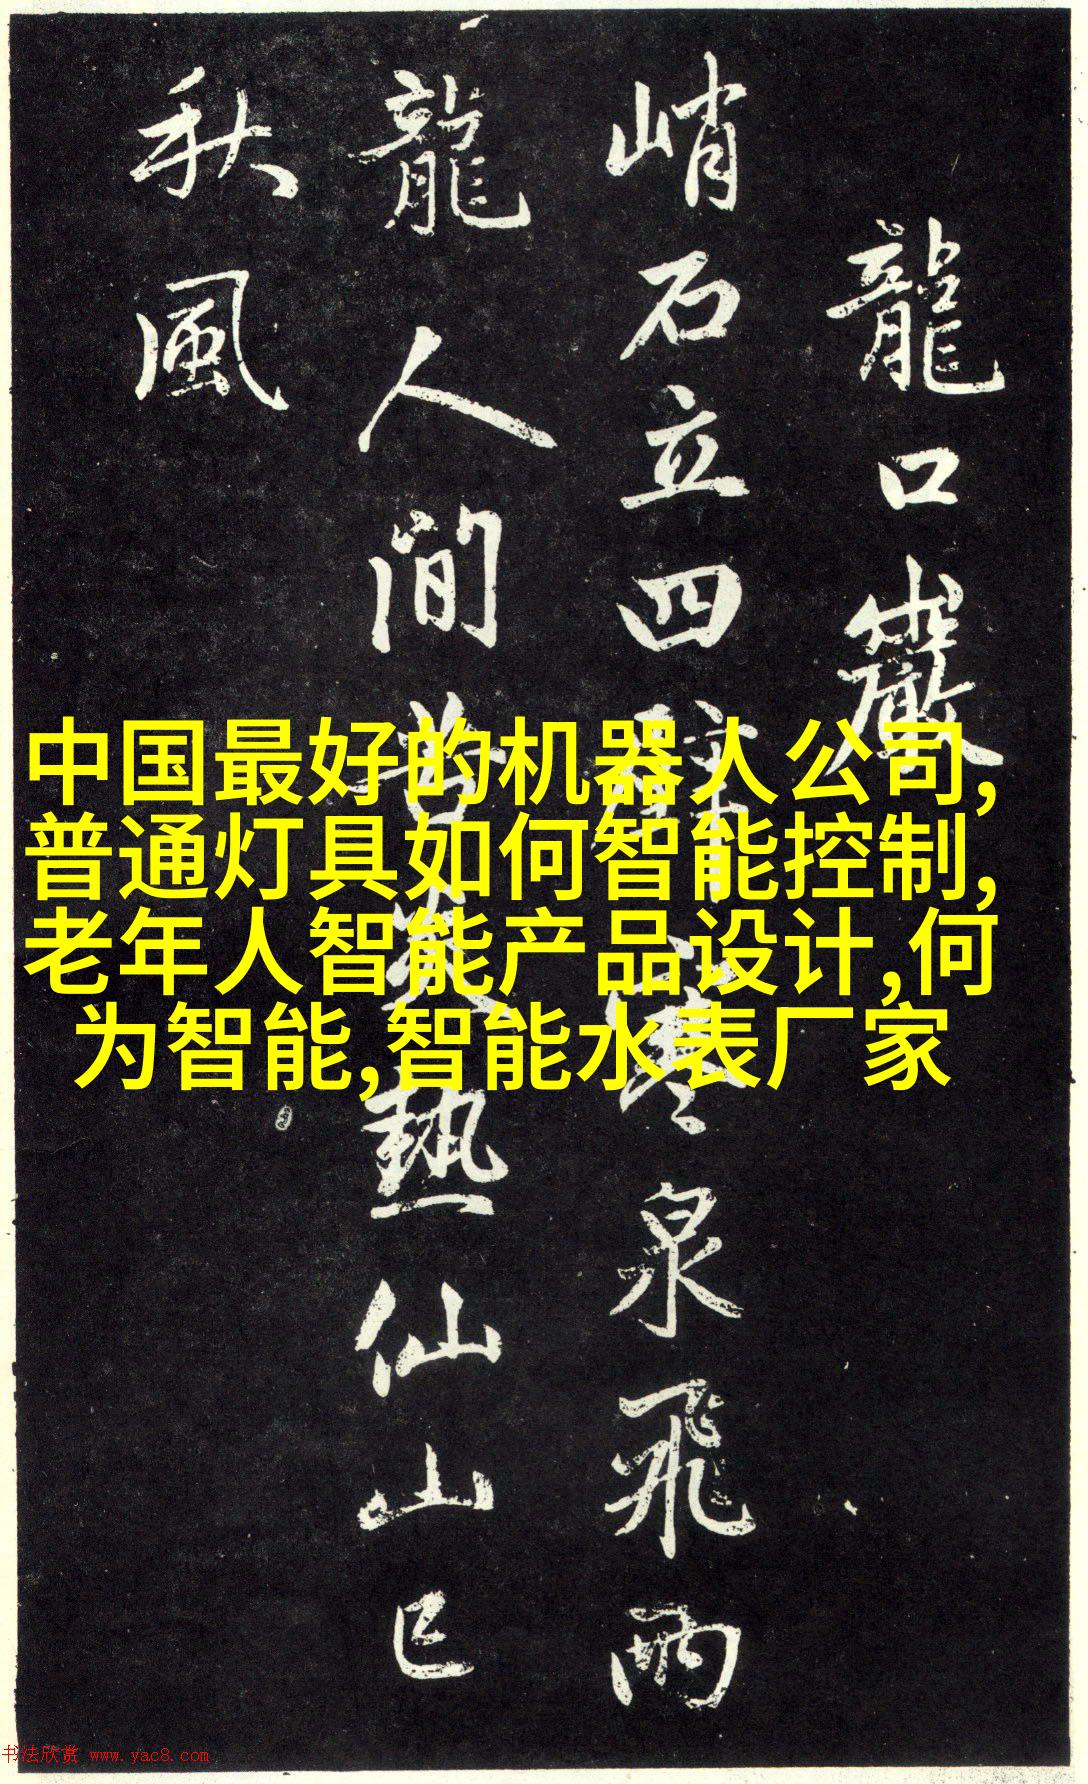 龍口巖
峭石立四壁寒泉飛兩
龍人間苦炎熱仙山已
秋風
中国最好的机器人公司,
普通灯具如何智能控制,
老年人智能产品设计,何
为智能,智能水表厂家
书法欣赏 www.yac8.com